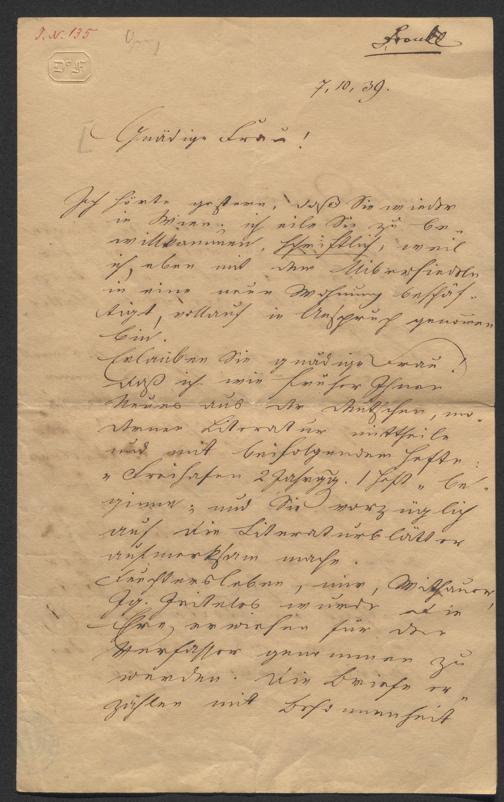 J. N. 135
Frankl
7, 10, 39.
Gnädige Frau!
Ich hörte gestern, daß Sie wieder
in Wien; ich eile Sie zu be-
willkommen, schriftlich, weil
ich eben mit dem Übersiedeln
in eine neue Wohnung beschäf-
tigt, vollauf in Anspruch genommen
bin.
Erlauben Sie gnädige Frau!
daß ich wie früher Ihnen
Neues aus der deutschen, mo-
dernen Literatur mittheile
und mit beifolgendem Hefte:
"Freihafen 2 Jahrgg. 1 Heft" be-
ginne, und Sie vorzüglich
auf die Literaturblätter
aufmerksam mache.
Feuchtersleben, mir, Witthauer,
Jeitteles wurde die
Ehre, erwiesen für den
Verfasser genommen zu
werden. Die Briefe er-
zählen mit Besonnenheit